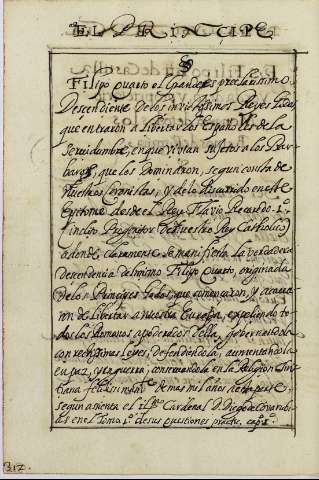 EL PRINCIPE
Filipo quarto el Grande, y preclarissimo
Descendiente de los invictissimos Reyes Godos
que entraron a libertar los Españoles de la
servidumbre, en que vivian sujetos a los Bar
baros, que los Dominaron, segun consta de
nuestros Coronistas, y de lo Discurrido en este
Epitome desde el Rey Flavio Recaredo 1º
inclito Progenitor de nuestro Rey Catholico
adonde claramente se manifiesta la verdadera
descendencia del mismo Filipo Quarto, originada
de los Principes Godos, que començaron, y acava
ron de libertar a nuestra Europa, expeliendo to
dos los Romanos apoderados della, governandola
con rectissimas leyes; defendiendola, aumentandola
en paz, y en guerra; conservandola en la Religion Cris
tiana felicissimamte de mas mil años
segun asienta el Illmo Cardenal D. Diego de Covarrubi
as en el Tomo 1º de sus questiones pract. cap. 1º
312.